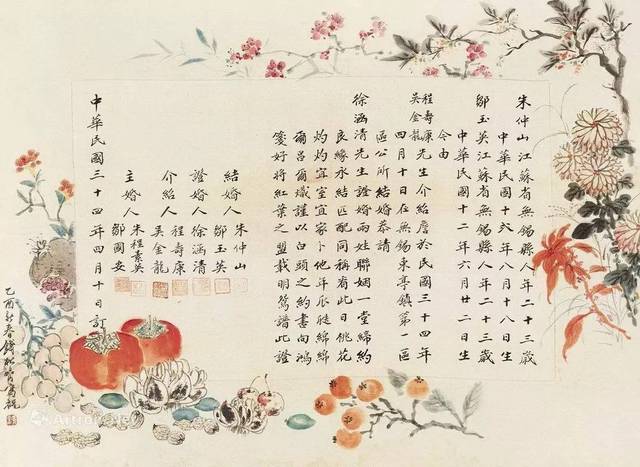 朱仲山江蘇省無錫縣人年二十三歲
中華民國十六年八月十八日生
鄒玉英江蘇省無錫縣人年二十三歲
中華民國十二年六月廿二日生
今由
程壽康
吳金龍先生介紹詹於民國三十四年
四月十日在無錫東亭鎮第一區
區公所結婚恭請
徐涵清先生證婚兩姓聯姻一堂締約
良緣永結匹配同稱看此日桃花
灼灼宜室宜家卜他年瓜瓞綿綿
爾昌爾熾謹以白頭之約書向鴻
箋好將紅葉之盟載明鴛譜此證
結婚人朱仲山
鄒玉英
證婚人徐涵清
介紹人程壽康
吳金龍
主婚人朱程素英
鄒國安
中華民國三十四年四月十日訂
乙酉新春錢松